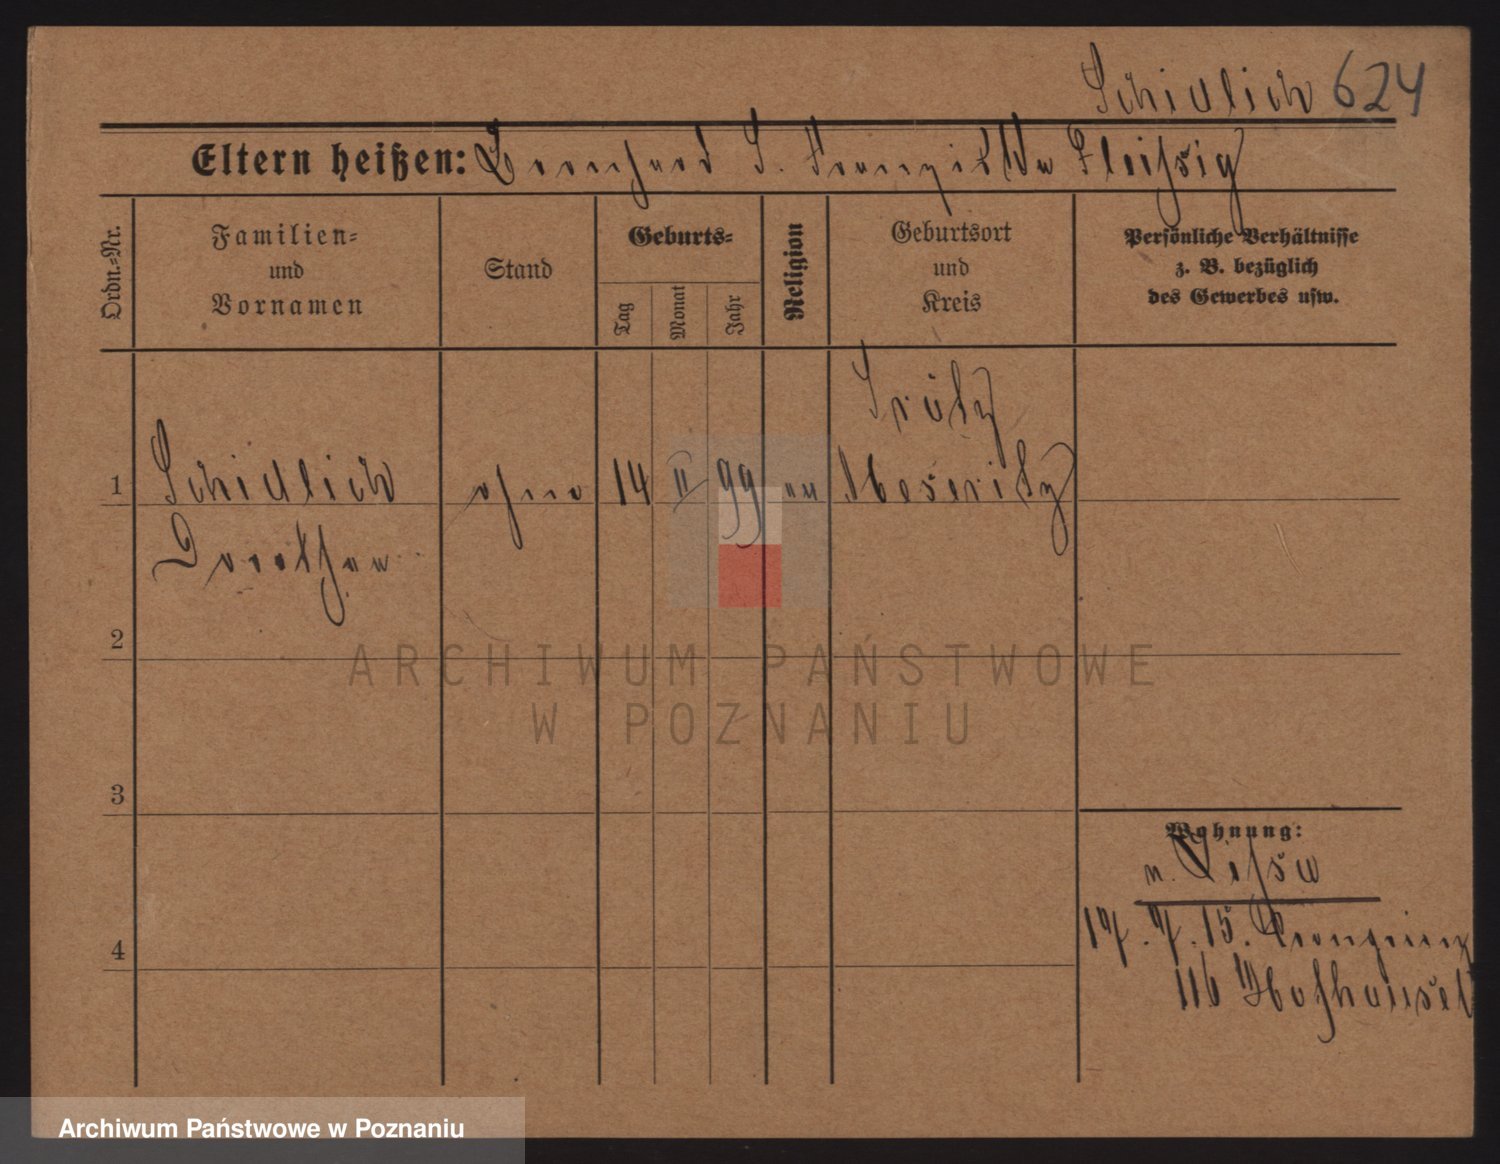 Schidlich 624
Eltern heißen: Bernhard S. Franziska Fleißig
Ordn.=Nr.
Familien=
und
Vornamen
Stand
Geburts=
Tag
Monat
Jahr
Religion
Geburtsort
und
Kreis
Persönliche Verhältnisse
z. B. bezüglich
des Gewerbes usw.
1
Schidlich
Dorothea
ohne
14 II 99
ev
Meseritz
2
3
4
Wohnung:
n. Lissa
17. 7. 15. Kronprinz
116
ARCHIWUM PAŃSTWOWE
W POZNANIU
Archiwum Państwowe w Poznaniu